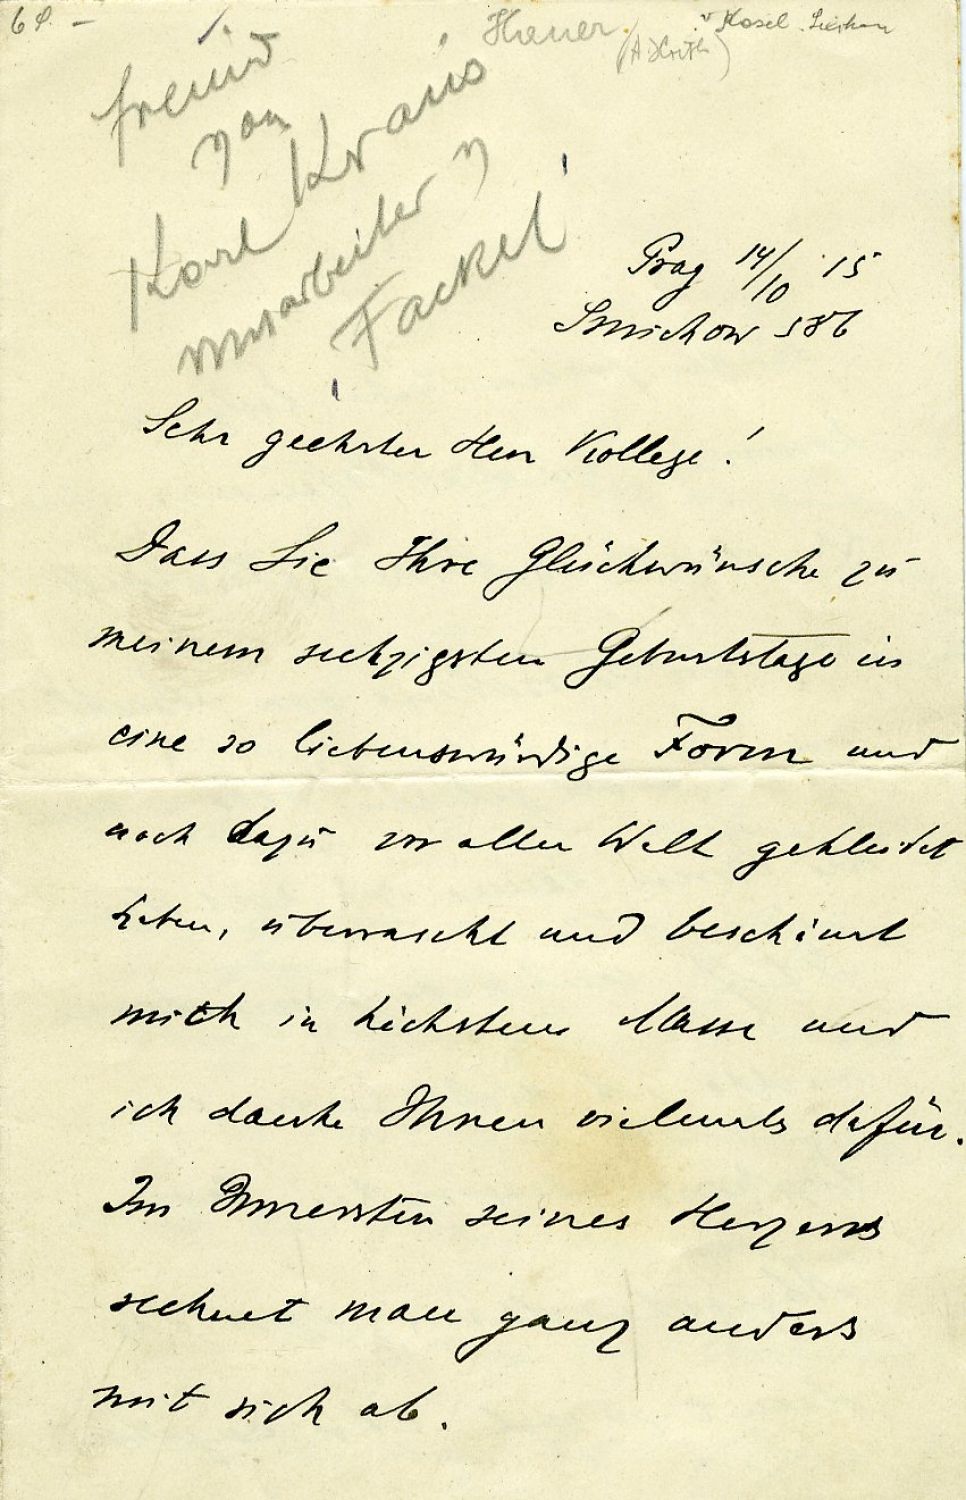 60.-
Freund
von
Karl Kraus
Mitarbeiter d
Fackel
Prag 14/10 15
Smichow 586
Sehr geehrter Herr Kollege!
Dass Sie Ihre Glückwünsche zu
meinem sechzigsten Geburtstage in
eine so liebenswürdige Form und
noch dazu vor aller Welt gekleidet
haben, überrascht und beschämt
mich in höchstem Masse und
ich danke Ihnen vielmals dafür.
Im Innersten seines Herzens
rechnet man ganz anders
mit sich ab.